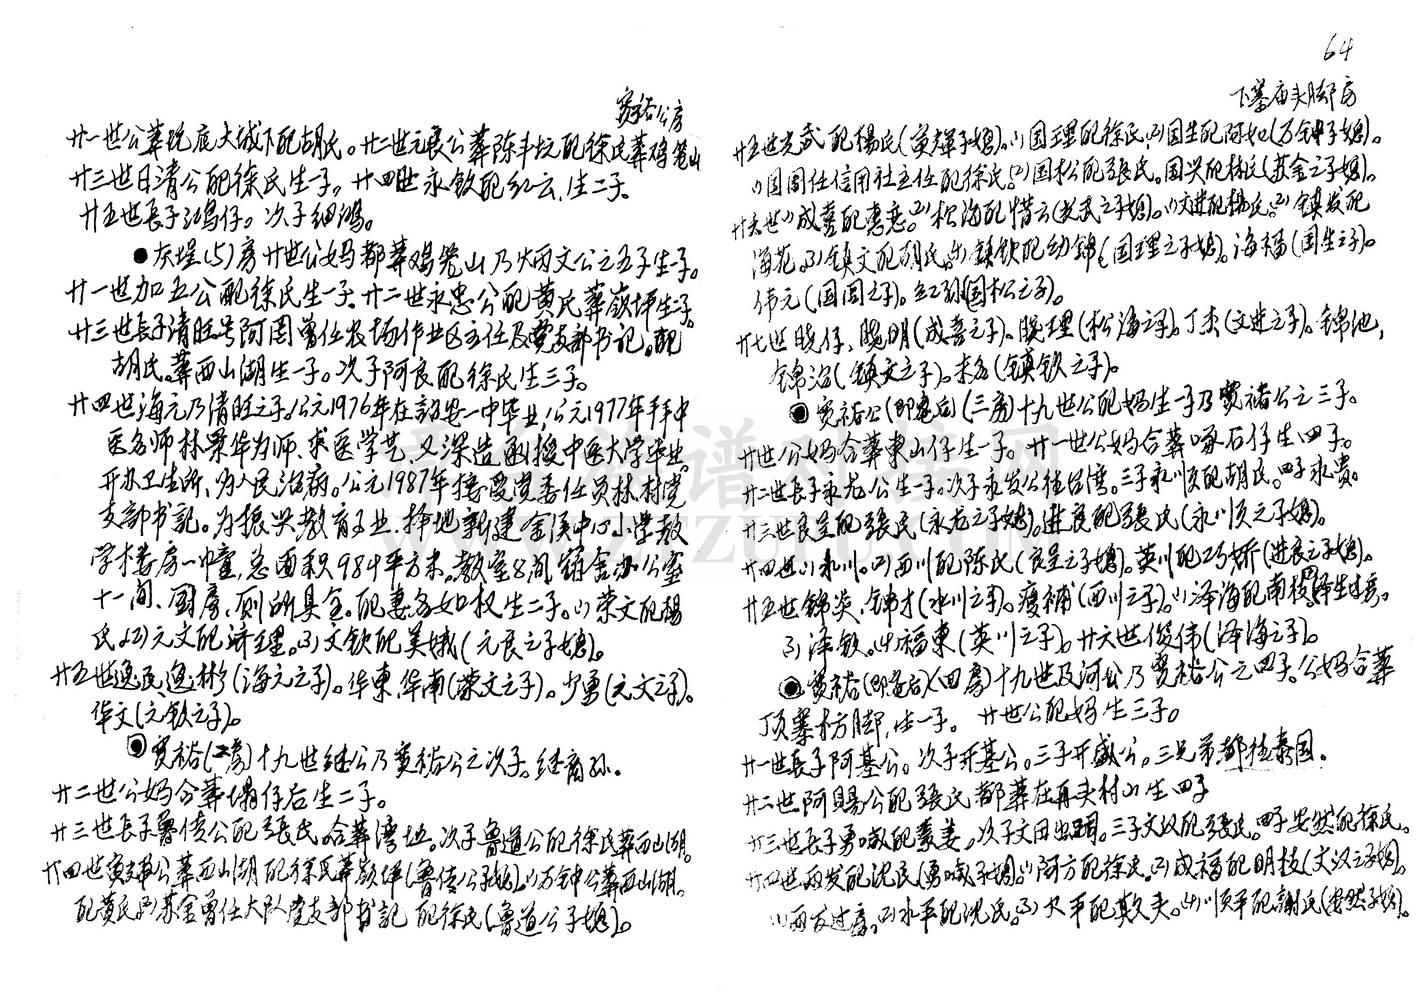 64
宽裕公房
廿一世公葬坑底大城下配胡氏。廿二世元良公葬陈丰坑配徐氏葬鸡笼山
廿三世日清公配徐氏生一子。廿四世永钦配红云、生二子
廿五世长子鸿仔。次子细鸿。
●灰埕(5)房廿世公妈都葬鸡笼山乃炳文公之五子生一子。
廿一世加五公配徐氏生一子、廿二世永忠公配黄氏葬岽坪生二子。
廿三世长子清旺号阿周曾任农场作业区主任及党支部书记。配
胡氏。葬西山湖生一子。次子阿良配徐氏生三子。
廿四世海元乃清旺之子,公元1976年在诏安一中毕业,公元1977年拜中
医名师林荣华为师、求医学艺、又深造函授中医大学毕业。
开办卫生所、为人民治病。公元1987年接受党委任员林村党
支部书记。为振兴教育事业、择地新建金溪中心小学教
学楼房一幢,总面积984平方米。教室8间,宿舍办公室
十一间、厨房、厕所具全。配惠务如权生二子。(1)荣文配杨
氏。(2)元文配济理。(3)文钦配美娥(元良之子媳)。
廿五世逸民、逸彬(海元之子)。华东、华南(荣文之子)。少勇(元文之子)。
华文(元钦之子)。
◉宽裕(二房)十九世继公乃宽裕公之次子。继裔孙.
廿二世公妈合葬塌仔后生二子。
廿三世长子鲁债公配张氏合葬湾地。次子鲁道公配徐氏葬西山湖。
廿四世寅东公葬西山湖配徐氏葬岽伴(鲁债公子媳)。(1)万钟公葬西山湖。
配黄氏。(2)苏金曾任大队党支部书记配徐氏(鲁道公子媳)。
下寨庙头脚房
廿五世光武配杨氏(寅东子媳)。(1)国理配徐氏。(2)国生配阿如(万钟子媳)。
(1)国周任信用社主任配徐氏。(2)国松配张氏。国兴配林氏(苏金之子媳)。
廿六世(1)成喜配惠恋。(2)松海配惜云(光武之子媳)。(1)文进配杨氏。(2)镇发配
海花。(3)镇文配胡氏。(4)镇钦配幼锦(国理之子媳)。海福(国生之子)。
伟元(国周之子)。红孙(国松之子)。
廿七世晓仔、晓明(成喜之子)、晓理(松海之子)。丁杰(文进之子)。锦池,
锦治(镇文之子)。未名(镇钦之子)。
◉宽裕公(即寨后)(三房)十九世公配妈生一子乃宽裕公之三子。
廿世公妈合葬东山仔生一子。廿一世公妈合葬啄石仔生四子。
廿二世长子永龙公生一子。次子永发公往台湾。三子永川顺配胡氏。四子永贵。
廿三世良呈配张氏(永龙之子媳)。进良配张氏(永顺之子媳)。
廿四世(1)永川。(2)西川配陈氏(良呈之子媳)。英川配巧娇(进良之子媳)。
廿五世锦炎、锦才(永川之子)。瘦補(西川之子)。(1)泽海配南枝。(2)泽生过房。
(3)泽钦。(4)福东(英川之子)。廿六世俊伟(泽海之子)。
◉宽裕(即寨后)(四房)十九世及河公乃宽裕公之四子。公妈合葬
顶寨枋脚,生一子。廿世公配妈生三子。
廿一世长子阿基公。次子开基公。三子开盛公,三兄弟都往泰国.
廿二世阿赐公配张氏都葬在再夫村山生四子
廿三世长子勇喊配素姜。次子文田出国。三子文汉配张氏。四子安然配徐氏。
廿四世两发配沈氏(勇喊子媳)。(1)阿方配徐氏。(2)成福配明枝(文汉之子媳)。
(1)两友过房。(2)水平配沈氏。(3)火平配欺夫。(4)顺平配谢氏(安然子媳)。